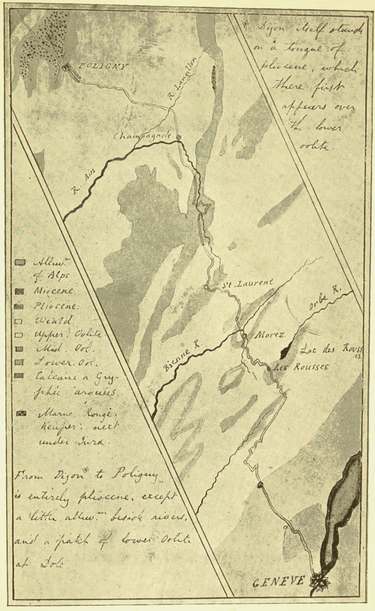 * Dijon itself stands
on a tongue of
pliocene, which
there first
appears over
the lower
oolite
POLIGNY
R. Langillon
Champagnole
R. Ain
St. Laurent
Orbe R.
Morez
Bienne R.
Lac des Rouss
es
Les Rousses
Alluvm
of Alps
Miocene
Pliocene
Weald
Upper. Oolite
Mid. Ool.
Lower. Ool.
Calcaire a Gry-
phée arquées.
Marne. Rouge.
Keuper. next
under Jura.
From Dijon* to Poligny
is entirely pliocene, except
a little alluvm beside rivers,
and a patch of lower Oolite
at Dole
GENEVE